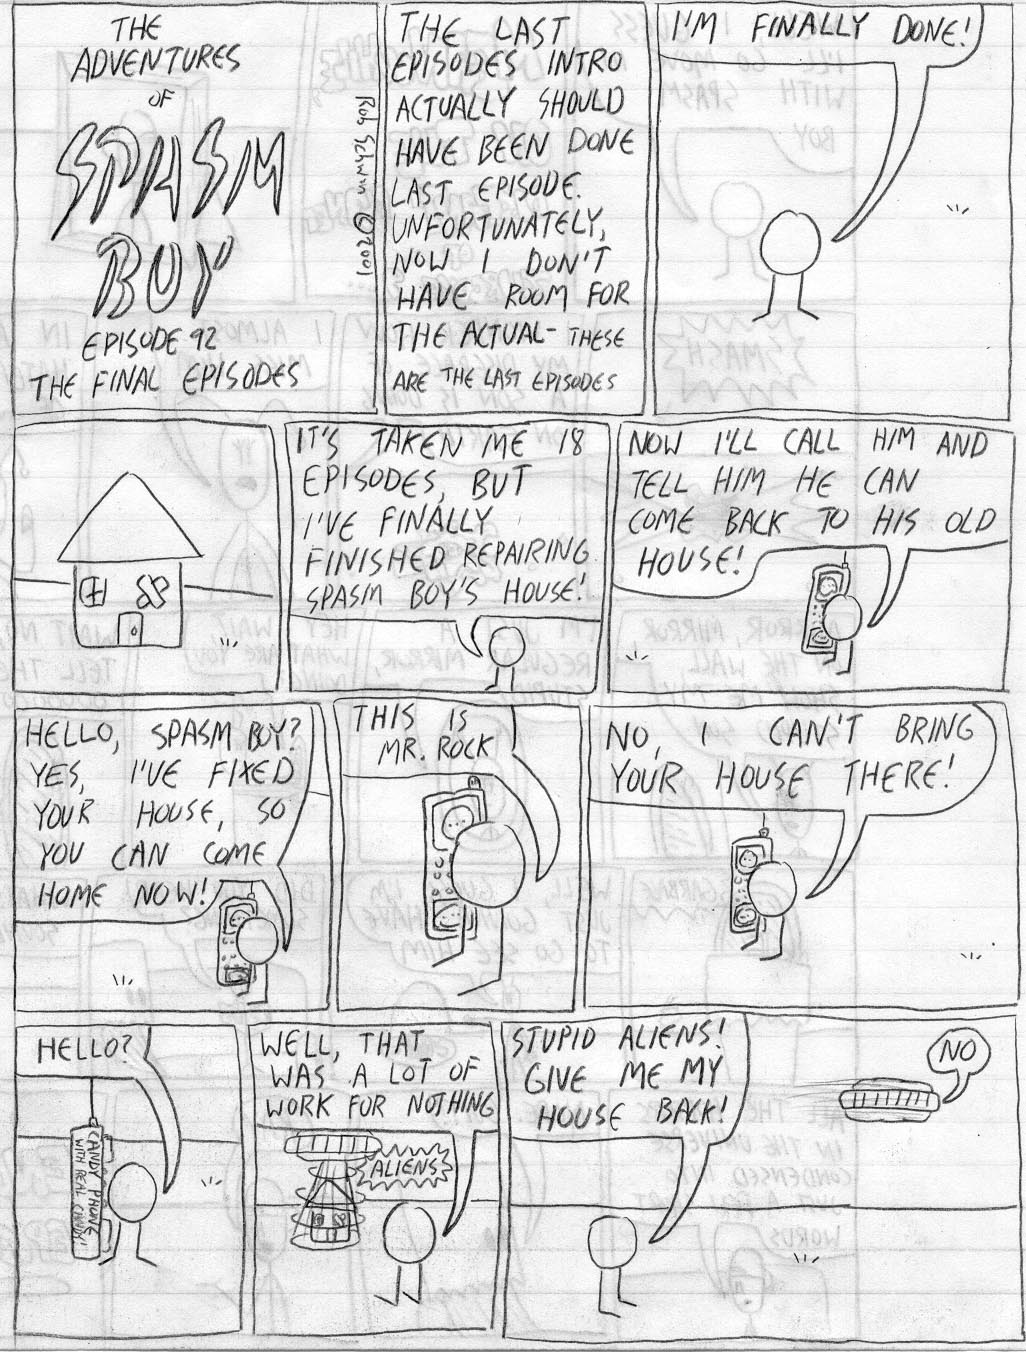 THE
ADVENTURES
OF
SPASM
BOY
EPISODE 92
THE FINAL EPISODES
Rob Schwin © 2001
THE LAST
EPISODES INTRO
ACTUALLY SHOULD
HAVE BEEN DONE
LAST EPISODE.
UNFORTUNATELY,
NOW I DON'T
HAVE ROOM FOR
THE ACTUAL- THESE
ARE THE LAST EPISODES
I'M FINALLY DONE!
IT'S TAKEN ME 18
EPISODES, BUT
I'VE FINALLY
FINISHED REPAIRING
SPASM BOY'S HOUSE!
NOW I'LL CALL HIM AND
TELL HIM HE CAN
COME BACK TO HIS OLD
HOUSE!
HELLO, SPASM BOY?
YES, I'VE FIXED
YOUR HOUSE, SO
YOU CAN COME
HOME NOW!
THIS IS
MR. ROCK
NO, I CAN'T BRING
YOUR HOUSE THERE!
HELLO?
CANDY PHONE
WITH REAL CANDY!
WELL, THAT
WAS A LOT OF
WORK FOR NOTHING
ALIENS
STUPID ALIENS!
GIVE ME MY
HOUSE BACK!
NO